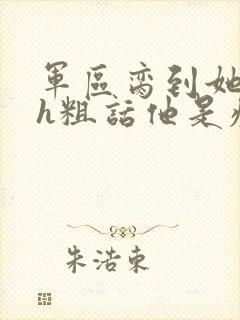 軍區寵到她
h粗話他是
朱浩東